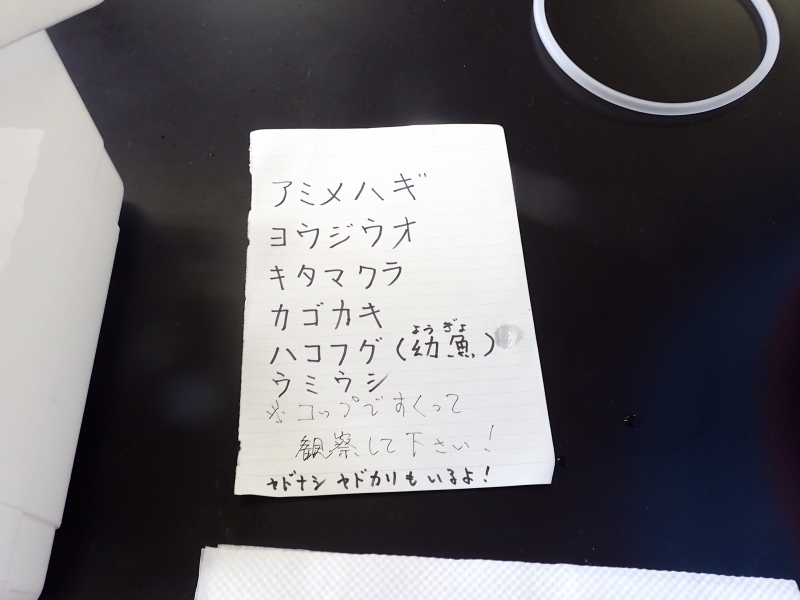 アミメハギ
ヨウジウオ
キタマクラ
カゴカキ
ようぎょ
ハコフグ(幼魚)
ウミウシ
※コップですくって
観察して下さい!
ヤドナシ ヤドカリもいるよ!